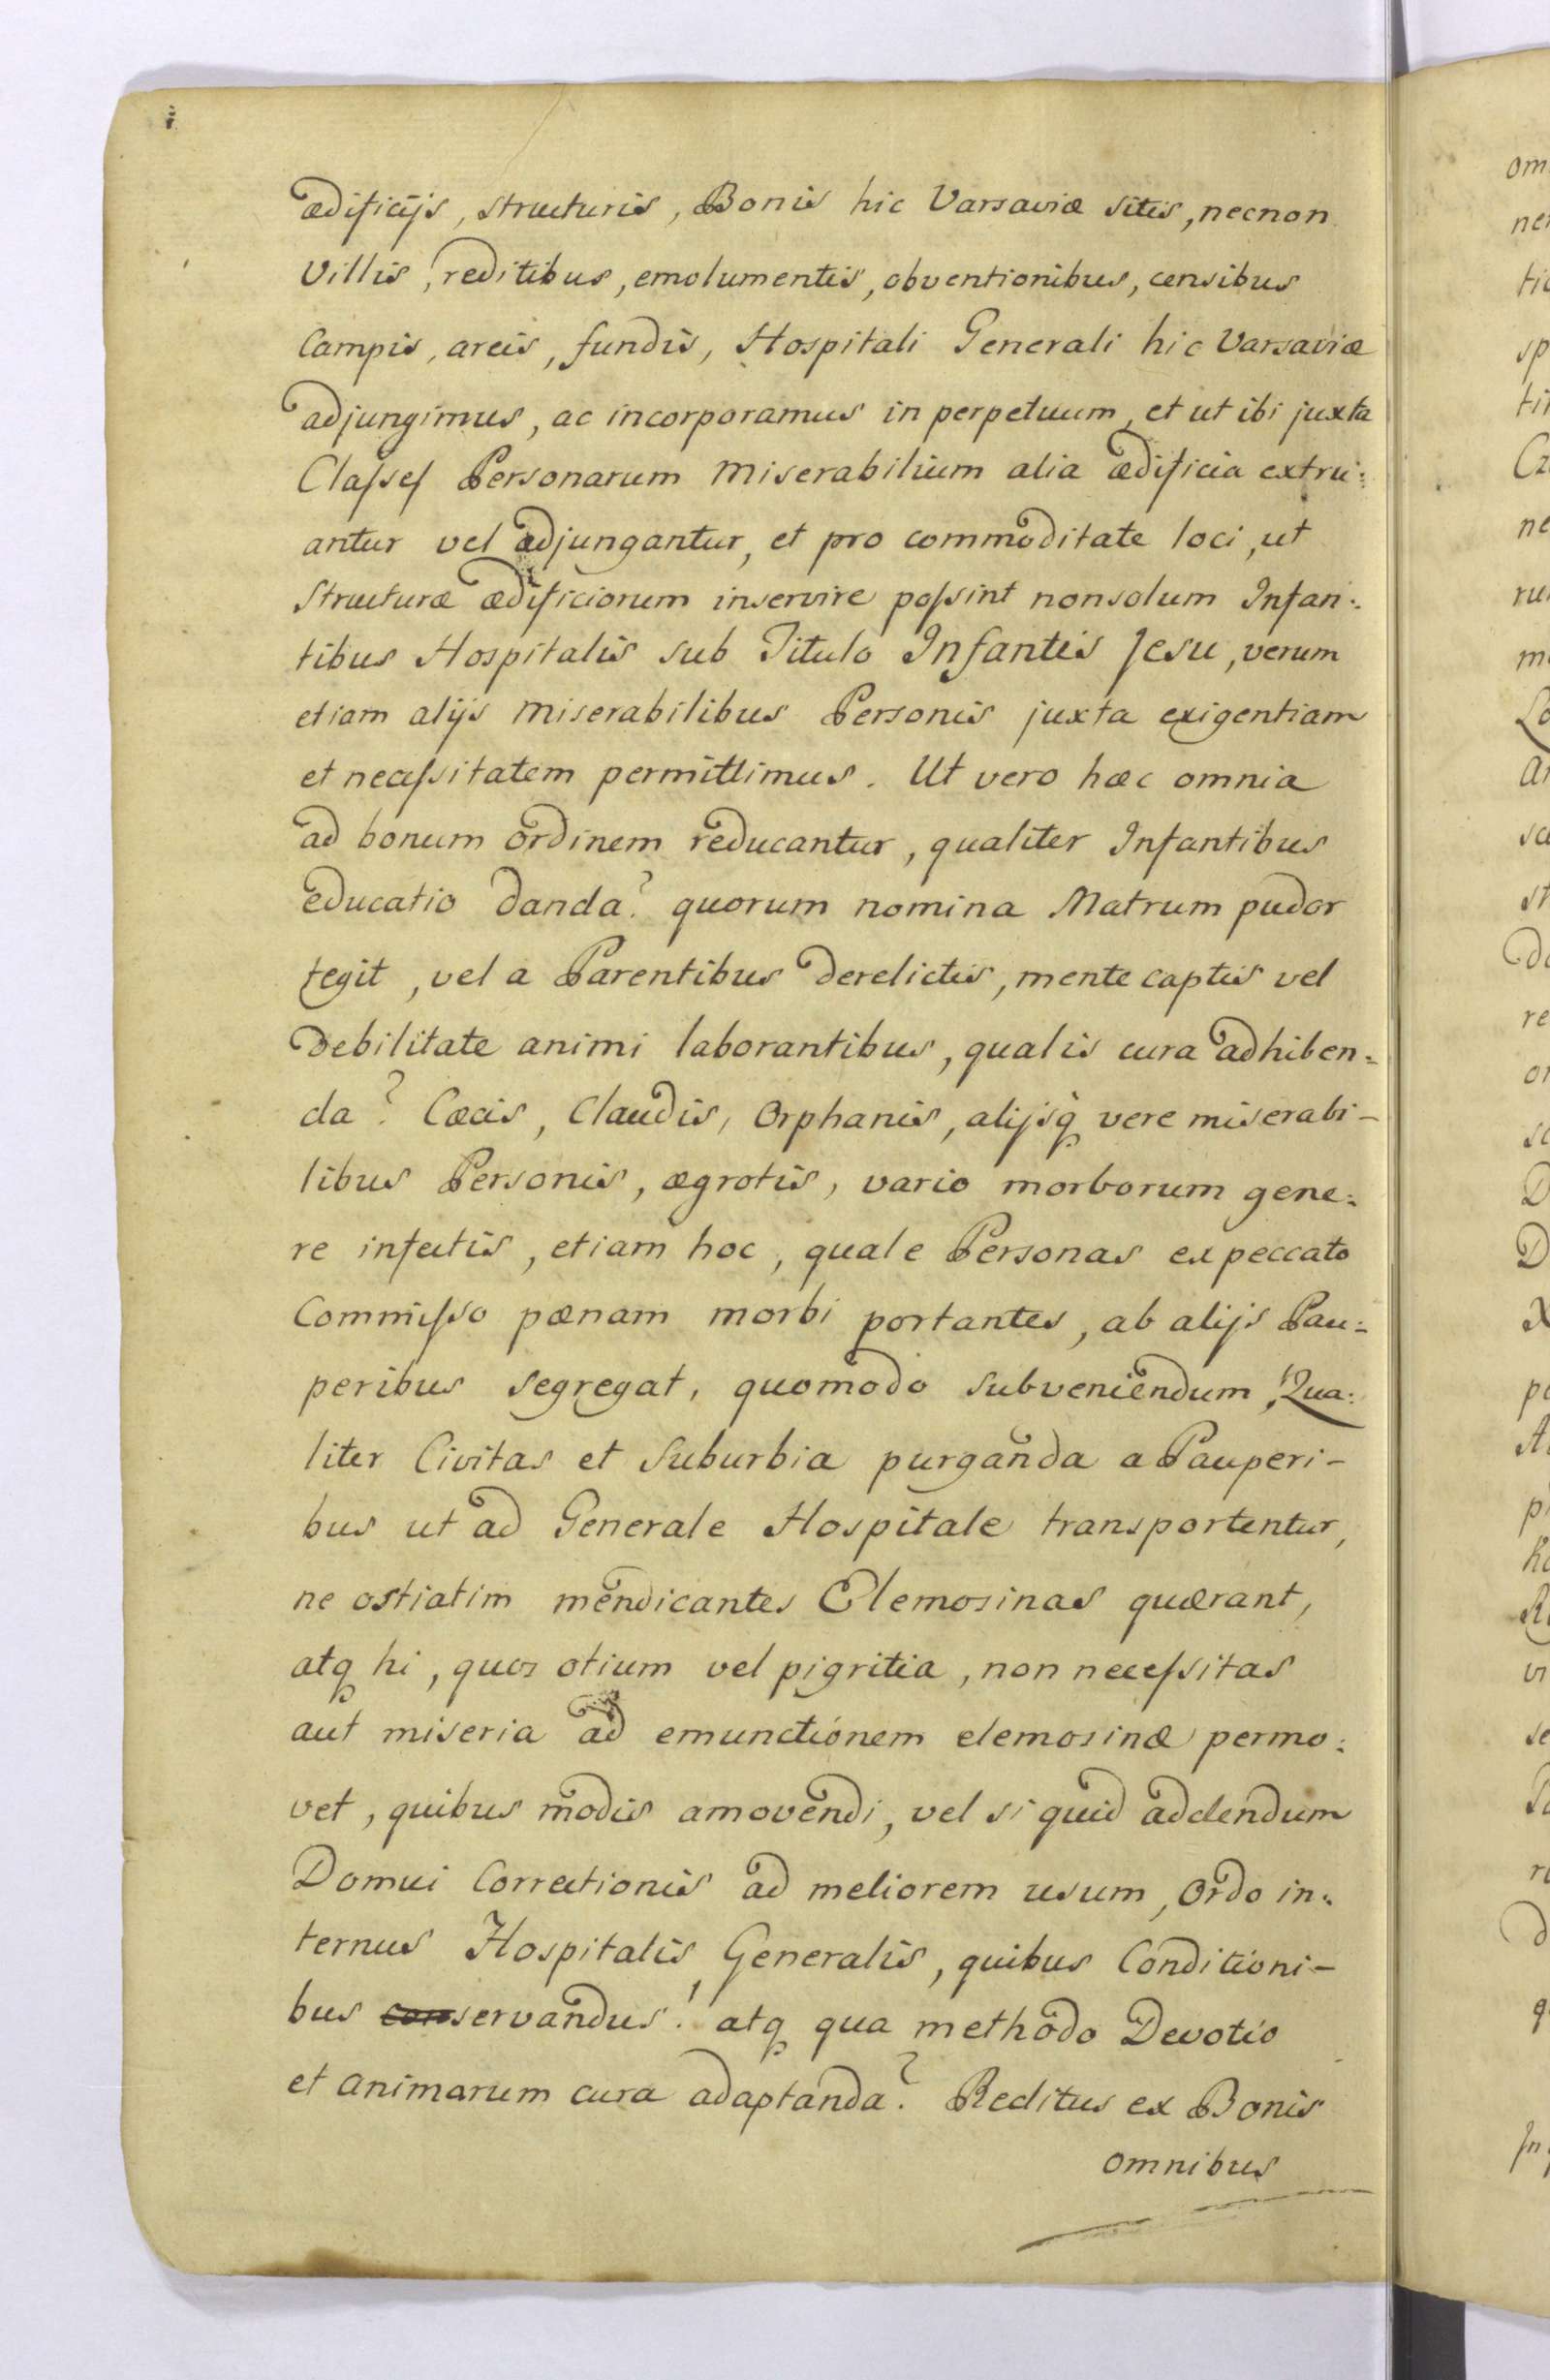 ædificijs, structuris, Bonis hic Varsaviæ sitis, necnon
Villis, reditibus, emolumentis, obventionibus, censibus
Campis, areis, fundis, Hospitali Generali hic Varsaviæ
adjungimus, ac incorporamus in perpetuum, et ut ibi juxta
Classes Personarum Miserabilium alia ædificia extru:
antur vel adjungantur, et pro commoditate loci, ut
Structuræ ædificiorum inservire possint nonsolum Infan:
tibus Hospitalis sub Titulo Infantis Jesu, verum
etiam alijs Miserabilibus Personis juxta exigentiam
et necessitatem permittimus. Ut vero hæc omnia
ad bonum ordinem reducantur, qualiter Infantibus
educatio danda? quorum nomina Matrum pudor
tegit, vel a Parentibus derelictis, mente captis vel
debilitate animi laborantibus, qualis cura adhiben:
da? Cæcis, Claudis, Orphanis, alijsq̀ vere miserabi-
libus Personis, ægrotis, vario morborum gene:
re infectis, etiam hoc, quale Personas ex peccato
Commisso pænam morbi portantes, ab alijs Pau:
peribus segregat, quomodo subveniendum, Qua:
liter Civitas et Suburbia purganda a Pauperi-
bus ut ad Generale Hospitale transportentur,
ne ostiatim mendicantes Elemosinas quærant,
atq hi, quos otium vel pigritia, non necessitas
aut miseria ad emunctionem elemosinæ permo:
vet, quibus modis amovendi, vel si quid addendum
Domui Correctionis ad meliorem usum, Ordo in:
ternus Hospitalis Generalis, quibus Conditioni-
bus conservandus! atq qua methodo Devotio
et animarum cura adaptanda? Reditus ex Bonis
omnibus